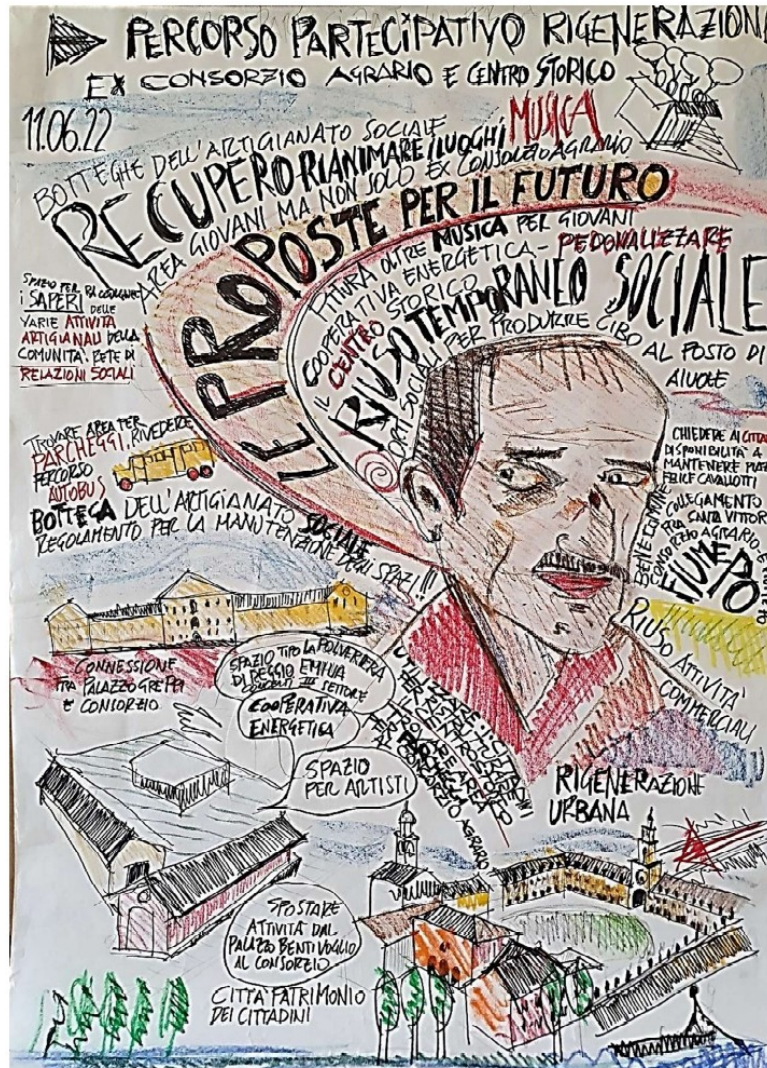 PERCORSO PARTECIPATIVO RIGENERAZION
EX CONSORZIO AGRARIO E CENTRO STORICO
11.06.22
BOTTEGHE DELL'ARTIGIANATO SOCIALE
MUSICA
RECUPERO RIANIMARE I LUOGHI
AREA GIOVANI MA NON SOLO EX CONSORZIO AGRARIO
LE PROPOSTE PER IL FUTURO
PITTURA OLTRE MUSICA PER GIOVANI
COOPERATIVA ENERGETICA - PEDONALIZZARE
IL CENTRO STORICO
RIUSO TEMPORANEO SOCIALE
ORTI SOCIALI PER PRODURRE CIBO AL POSTO DI
AIUOLE
SPAZIO PER
I SAPERI DELLE
VARIE ATTIVITÀ
ARTIGIANALI DELLA
COMUNITÀ. RETE DI
RELAZIONI SOCIALI
TROVARE AREA PER
PARCHEGGI. RIVEDERE
PERCORSO
AUTOBUS
BOTTEGA DELL'ARTIGIANATO SOCIALE
REGOLAMENTO PER LA MANUTENZIONE DEGLI SPAZI!!!
CHIEDERE AI CITTA
DISPONIBILITÀ A
MANTENERE
FELICE CAVALLOTTI
BENE COMUNE
COLLEGAMENTO
FRA SANTA VITTOR
CONSORZIO AGRARIO E
FIUME PO
RIUSO ATTIVITÀ
COMMERCIALI
CONNESSIONE
FRA PALAZZO GREPPI
E CONSORZIO
SPAZIO TIPO LA POLVERIERA
DI REGGIO EMILIA
III SETTORE
COOPERATIVA
ENERGETICA
SPAZIO
PER ARTISTI
AREA
CONSORZIO AGRARIO
RIGENERAZIONE
URBANA
SPOSTARE
ATTIVITÀ DAL
PALAZZO BENTIVOGLIO
AL CONSORZIO
CITTÀ PATRIMONIO
DEI CITTADINI